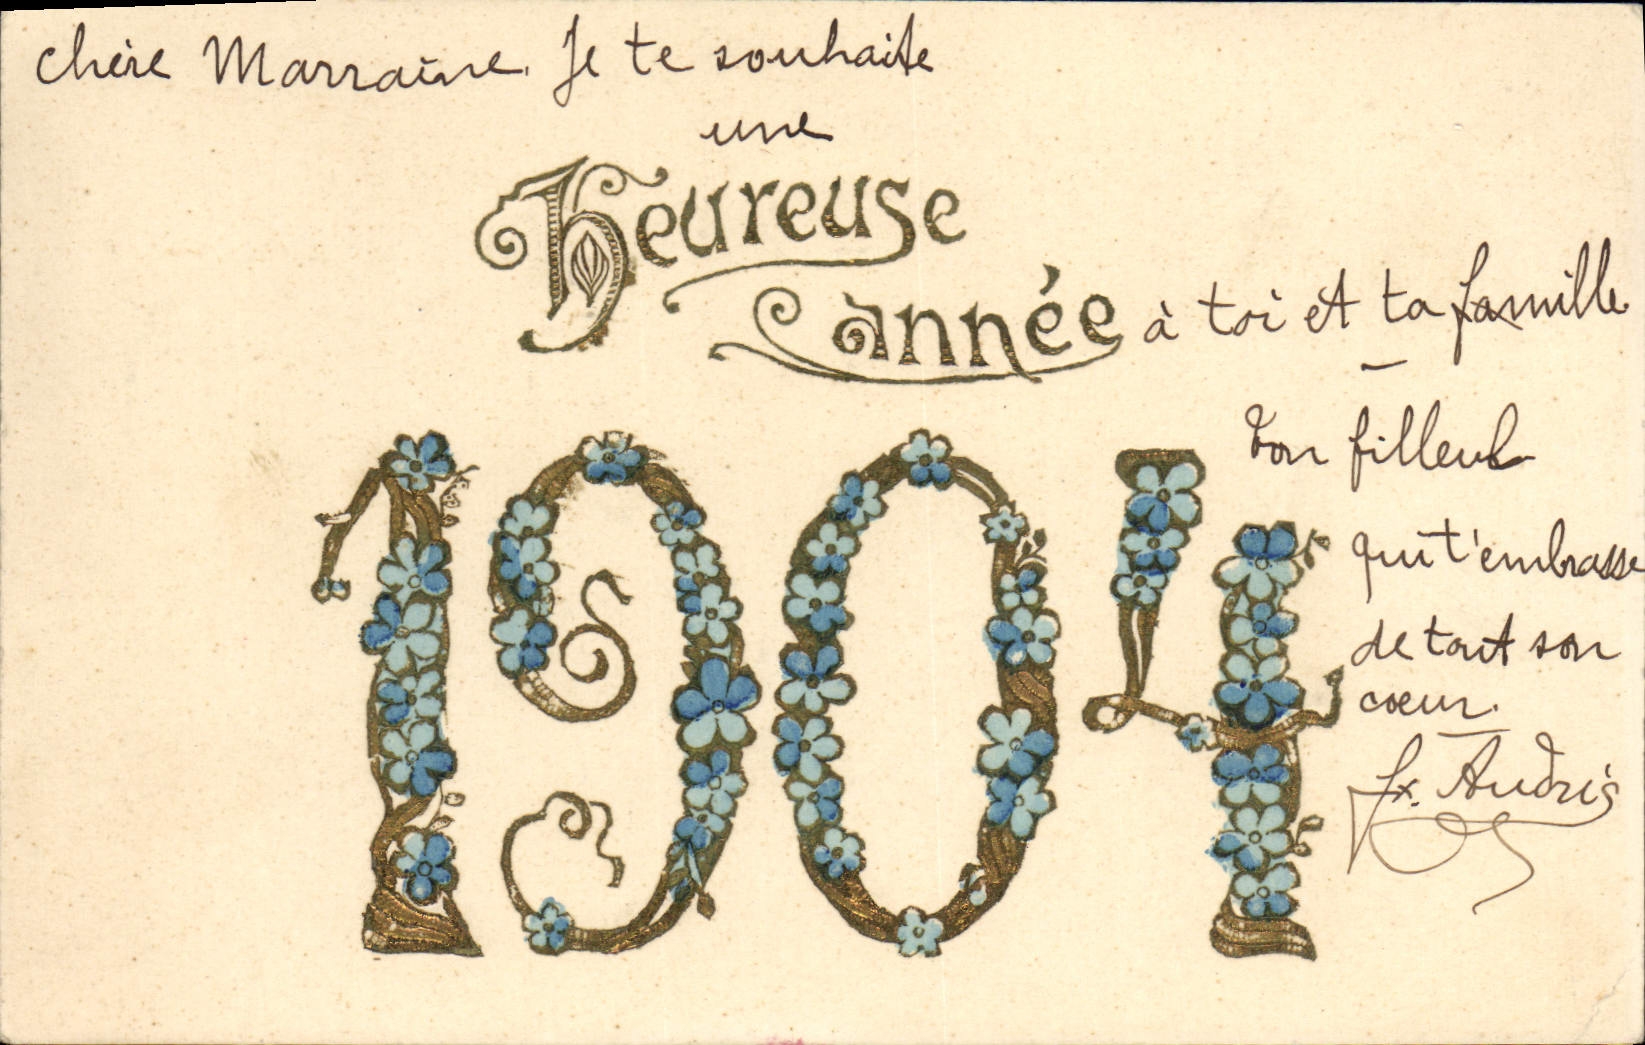 chère Marraine. Je te souhaite
une
Heureuse
année à toi et ta famille
Ton filleul
qui t'embrasse
de tout son
coeur.
Fx. Audris
1904